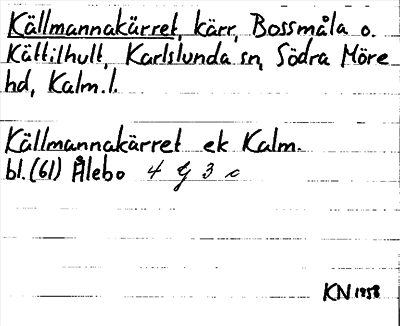 Källmannakärret, kärr, Bossmåla o.
Kättilhult, Karlslunda sn, Södra Möre
hd, Kalm.l.
Källmannakärret ek Kalm.
bl. (61) Ålebo 4 G 3 c
KN 1958